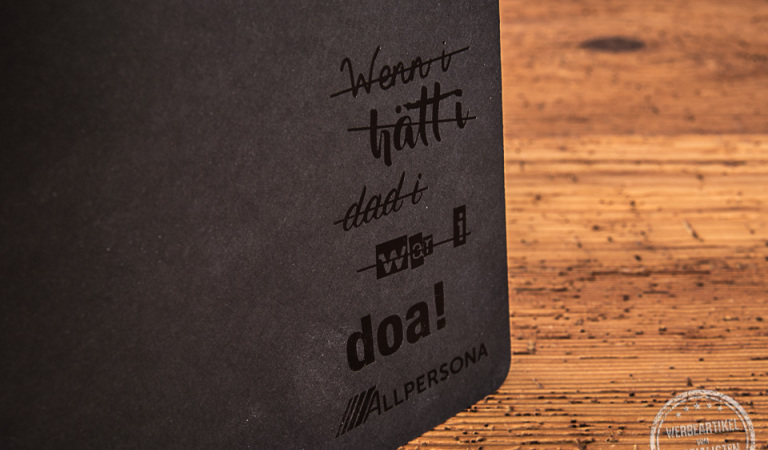 Wenn i
hätt i
dad i
wer i
doa!
ALLPERSONA
WERBEARTIKEL